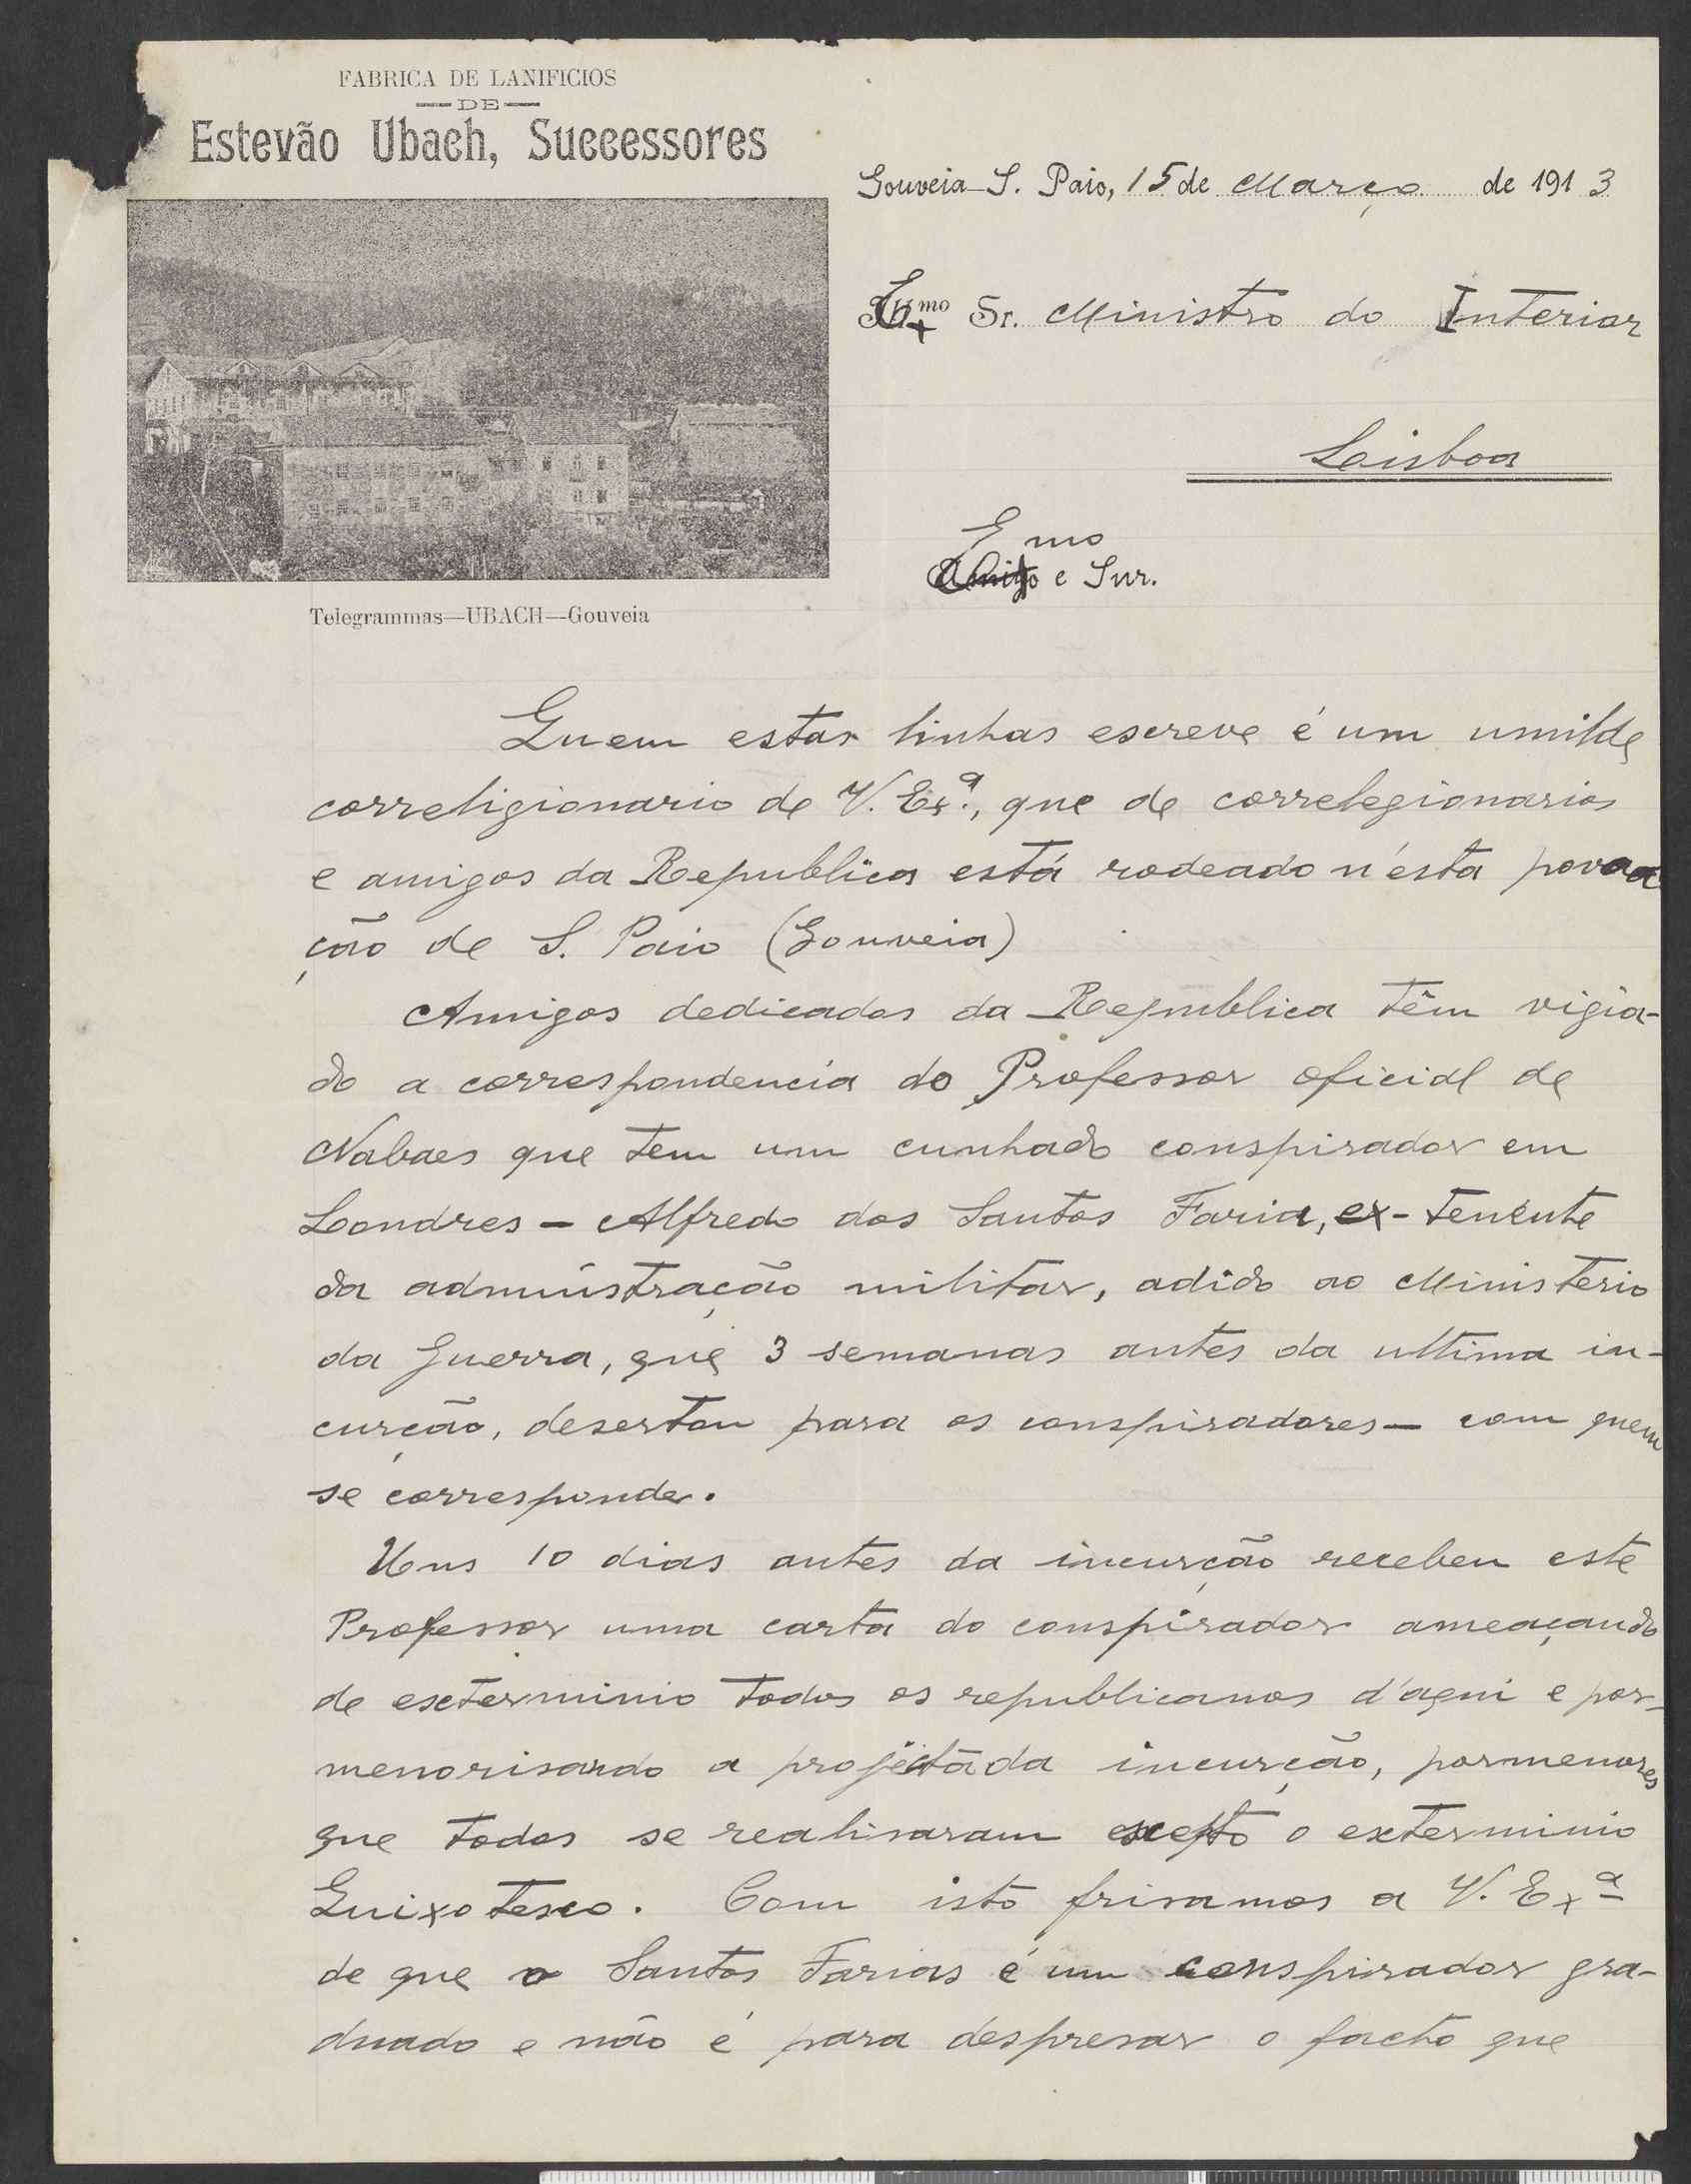 FABRICA DE LANIFICIOS
DE
Estevão Ubach, Successores
Gouveia—S. Paio, 15 de Março de 1913
Exmo Sr. Ministro do Interior
Lisboa
Telegrammas—UBACH—Gouveia
Emo
Amigo e Snr.
Quem estas linhas escreve é um umilde
correligionario de V. Exª., que de correlegionarios
e amigos da Republica está rodeado n'esta povoa
ção de S. Paio (Gouveia)
Amigos dedicados da Republica têm vigia-
do a correspondencia do Professor oficial de
Nabaes que tem um cunhado conspirador em
Londres – Alfredo dos Santos Faria, ex-tenente
da administração militar, adido ao Ministerio
da Guerra, que 3 semanas antes da ultima in-
curção, desertou para os conspiradores – com quem
se corresponde.
Uns 10 dias antes da incurção recebeu este
Professor uma carta do conspirador ameaçando
de exterminio todos os republicanos d'aqui e por-
menorisando a projétada incurção, pormenores
que todos se realisaram excepto o exterminio
Quixotesco. Com isto frisamos a V. Exª
de que o Santos Farias é um conspirador gra-
duado e não é para despresar o facto que